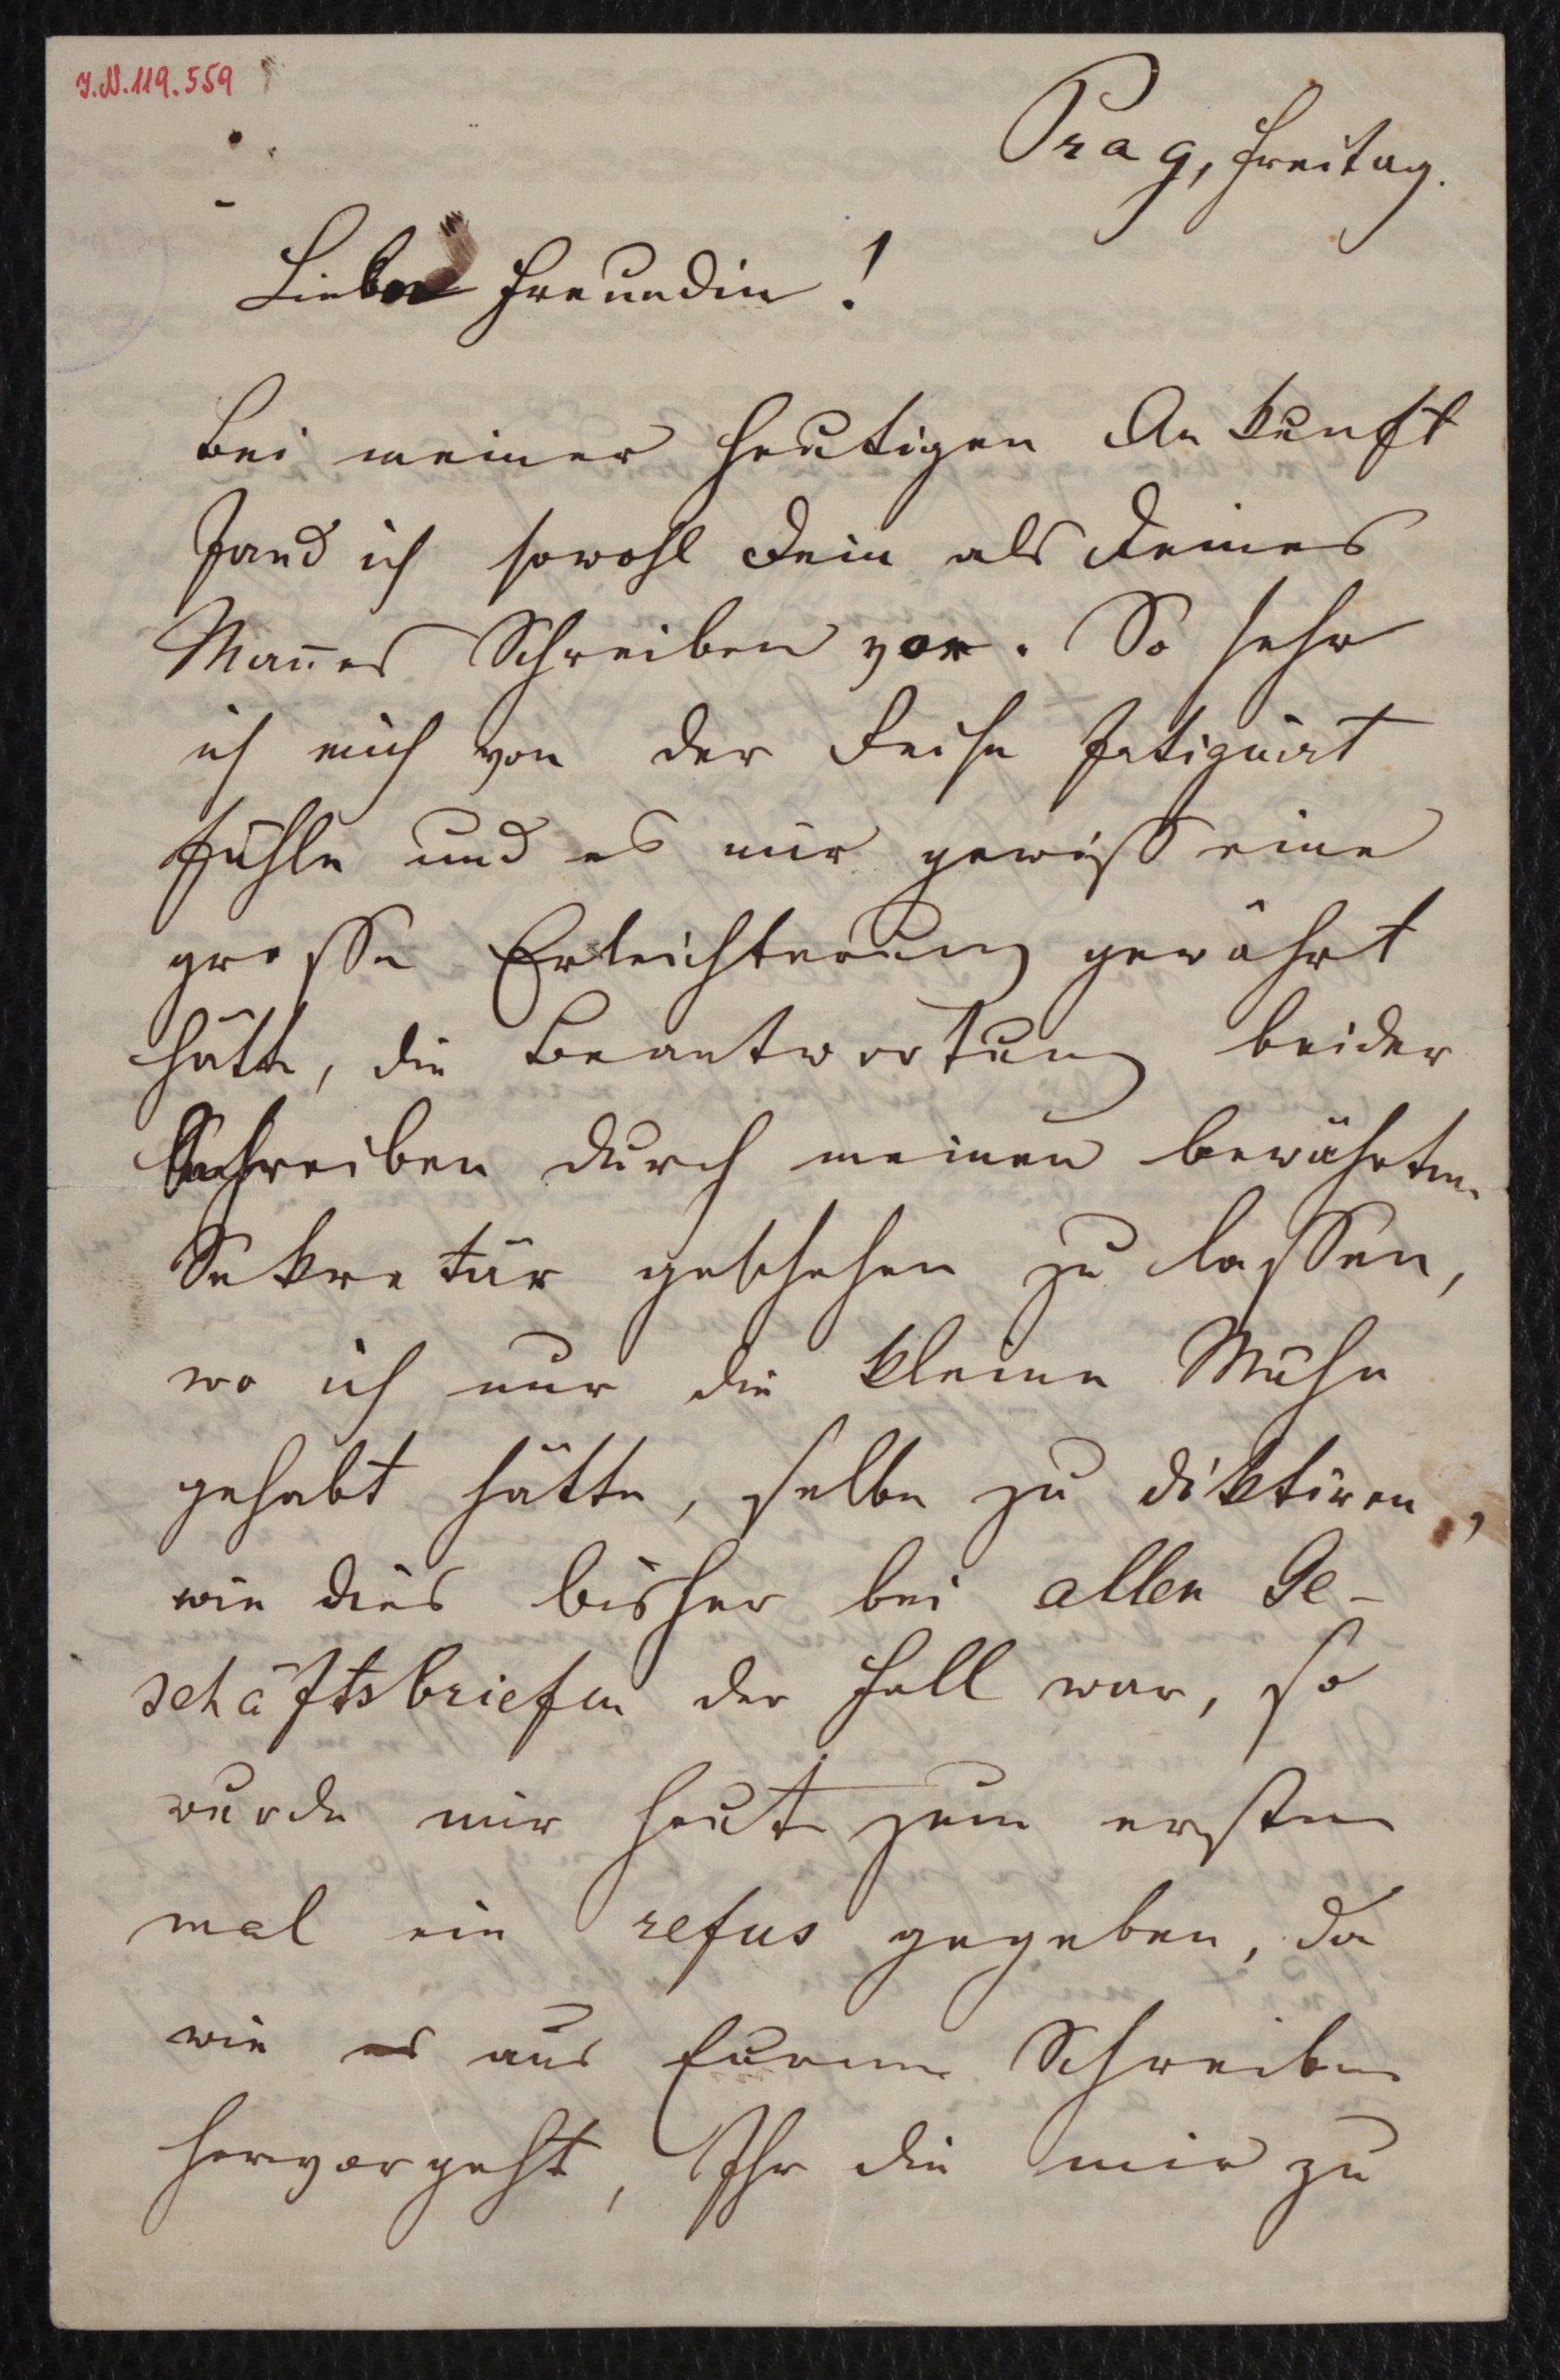 J.N.119.559
Prag, Freitag.
Liebe Freundin!
Bei meiner heutigen Ankunft
fand ich sowohl Dein als Deines
Mañes Schreiben vor. So sehr
ich mich von der Reise fatiguirt
fühle und es mir gewiß eine
grosse Erleichterung gewährt
hätte, die Beantwortung beider
Schreiben durch meinen bewährten
Sekretär geschehen zu lassen,
wo ich nur die kleine Mühe
gehabt hätte, selbe zu diktiren,
wie dies bisher bei allen Ge-
schäftsbriefen der Fall war, so
wurde mir heute zum ersten
mal ein refus gegeben, da
wie es aus Eurem Schreiben
hervorgeht, Ihr die mir zu